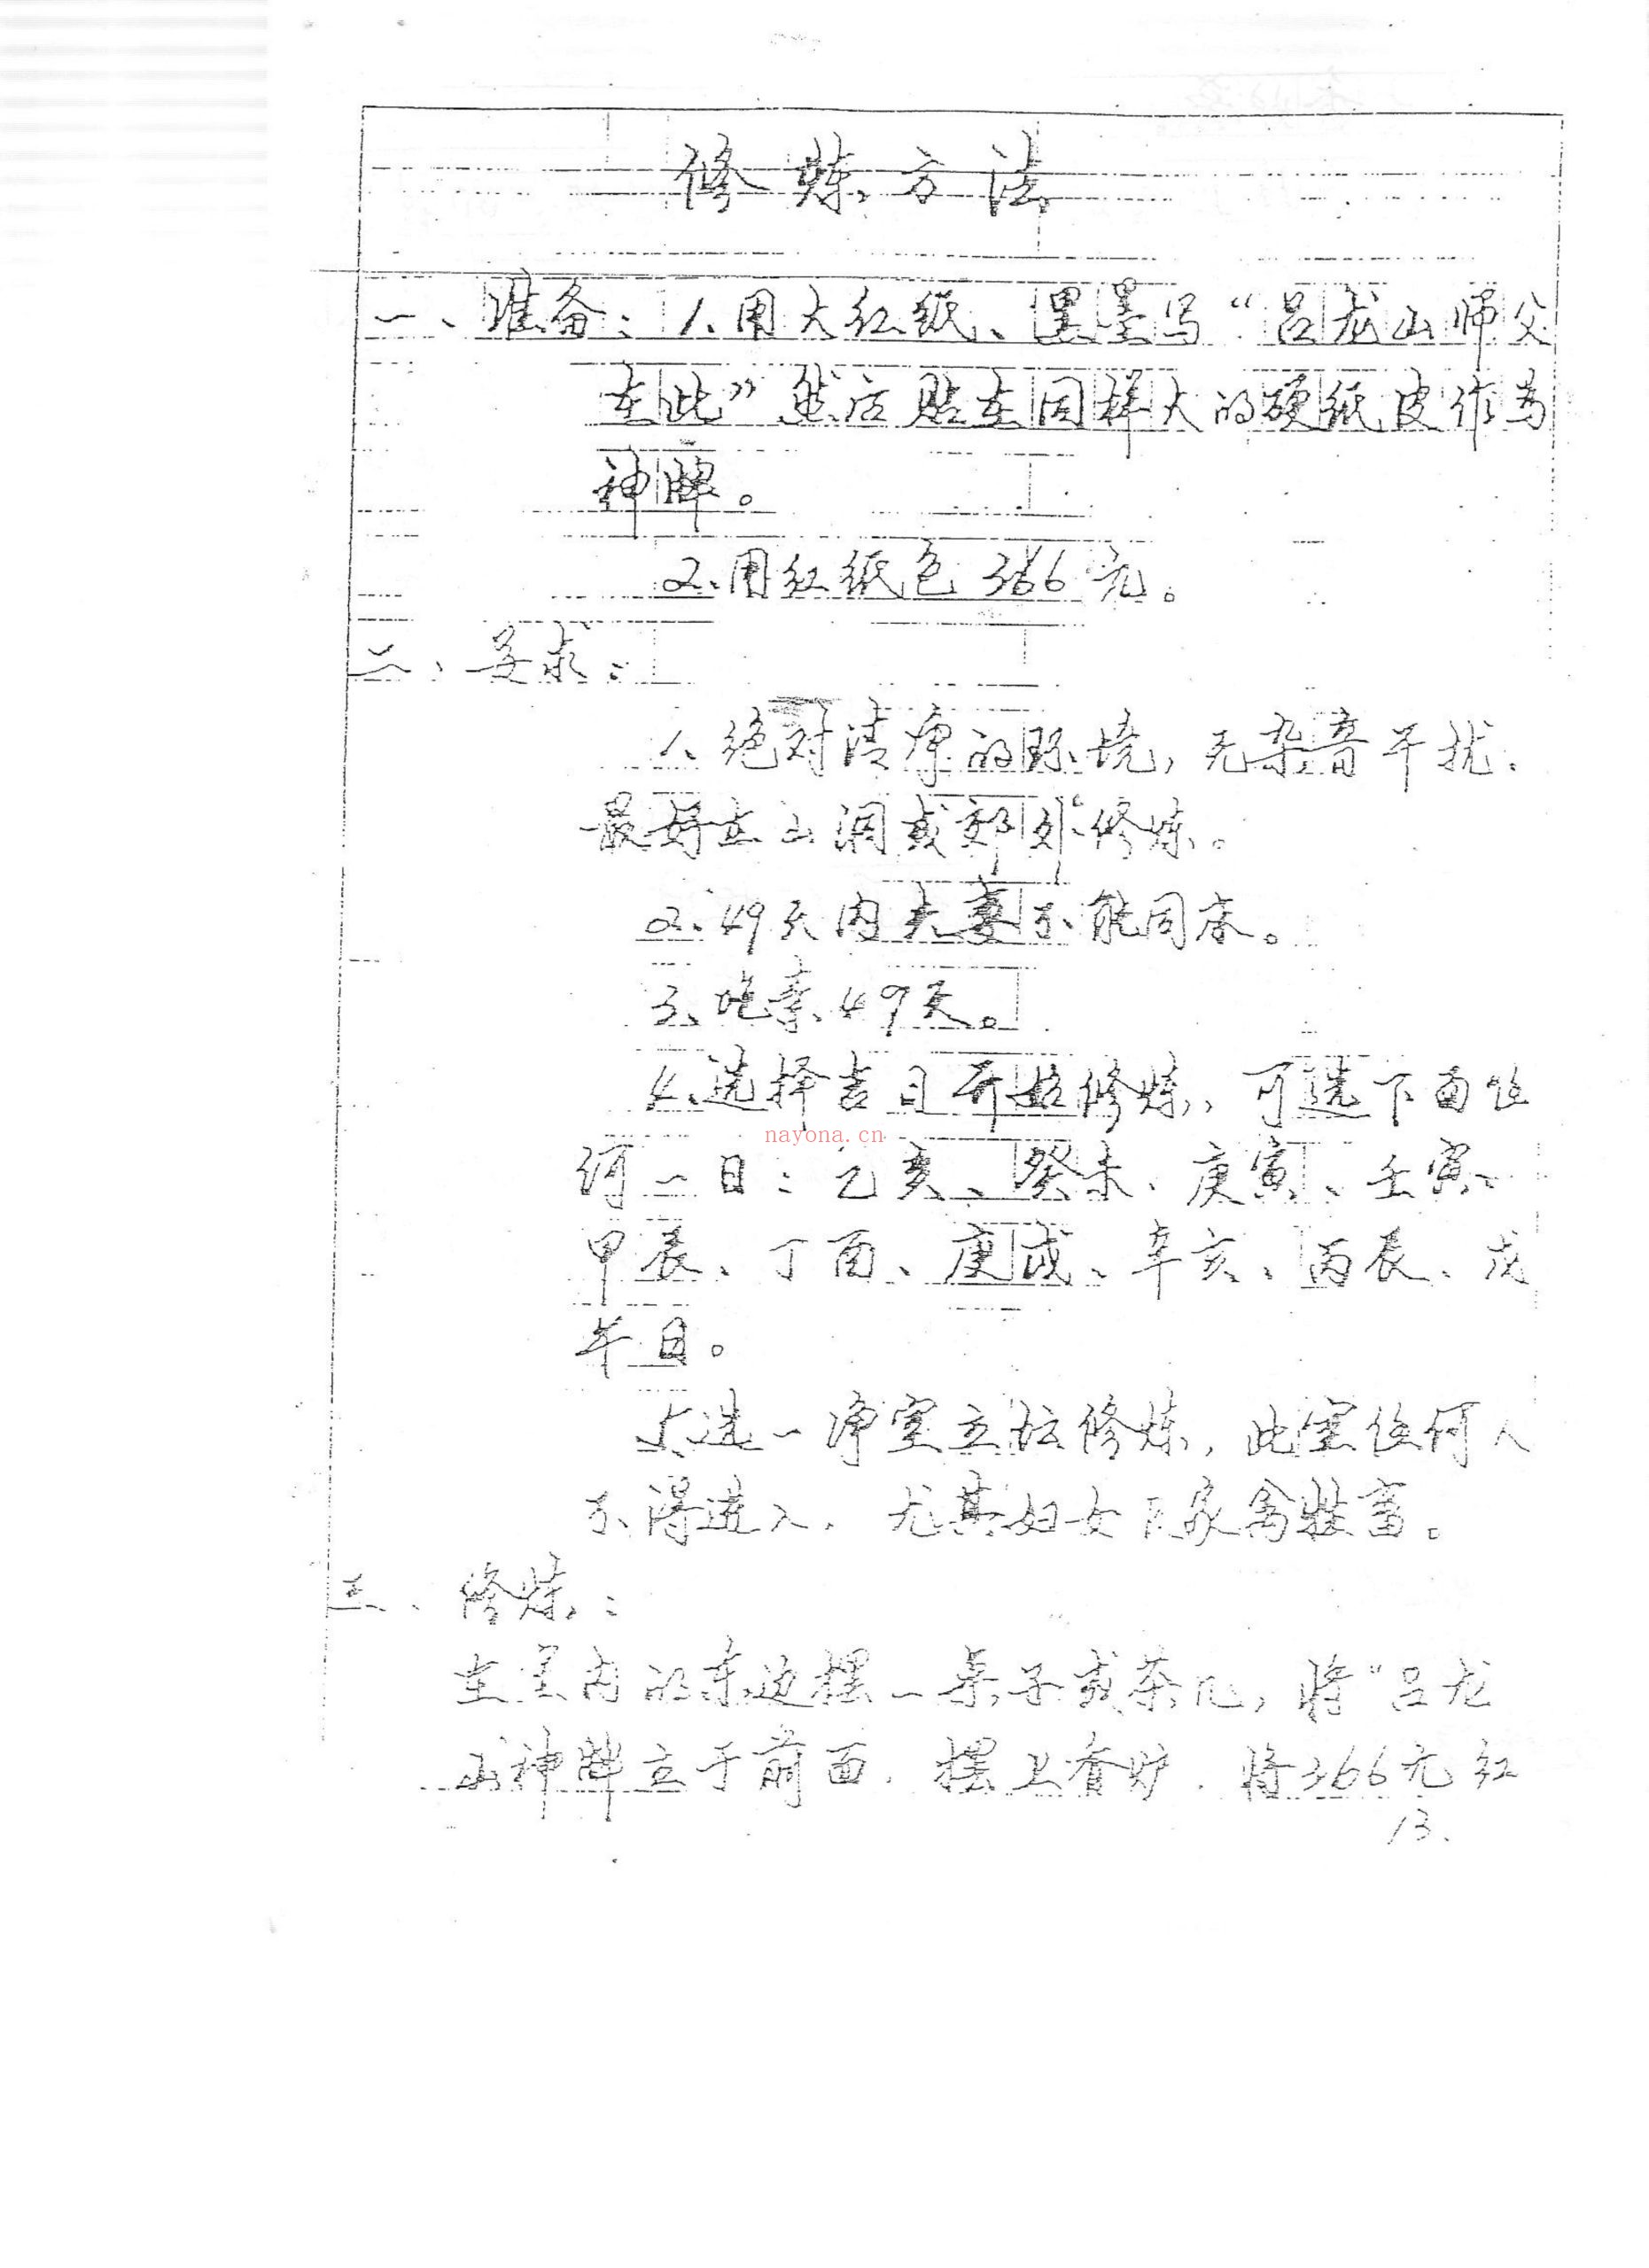 修炼方法
一、准备：1、用大红纸、黑墨写“吕龙山师父
在此”然后贴在同样大的硬纸皮作为
神牌。
2、用红纸包366元。
二、要求：
1、绝对清净的环境，无杂音干扰，
最好在山洞或郊外修炼。
2、49天内夫妻不能同床。
3、吃素49天。
4、选择吉日开始修炼，可选下面任
何一日：乙亥、癸未、庚寅、壬寅、
甲辰、丁酉、庚戌、辛亥、丙辰、戊
午日。
nayona.cn
5、选一净室立坛修炼，此室任何人
不得进入，尤其妇女及家禽牲畜。
三、修炼：
在室内的东边摆一桌子或茶几，将“吕龙
山神牌立于前面，摆上香炉，将366元红
13.